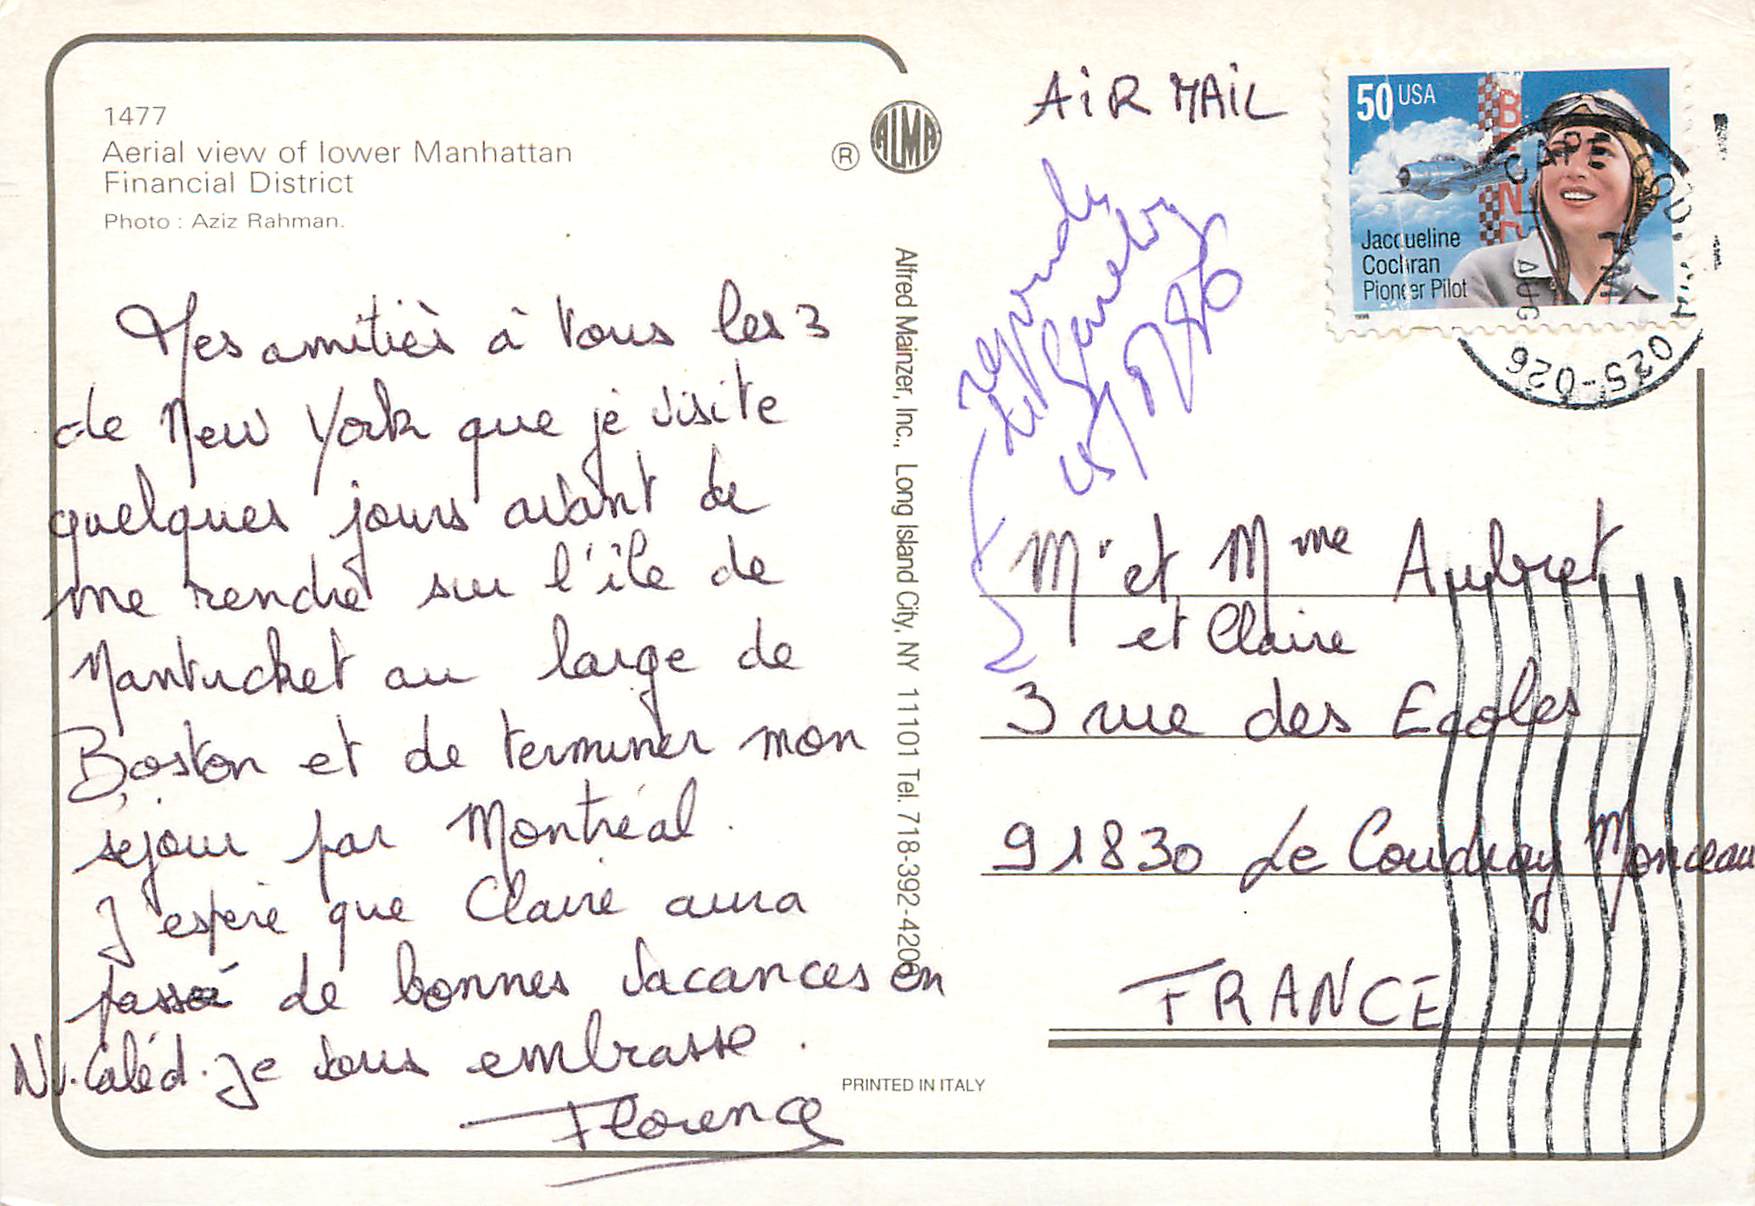 1477
Aerial view of lower Manhattan
Financial District
Photo : Aziz Rahman.
Mes amitiés à vous les 3
de New York que je visite
quelques jours avant de
me rendre sur l'île de
Nantucket au large de
Boston et de terminer mon
séjour par Montréal.
J'espère que Claire aura
passé de bonnes vacances en
Nv. Caléd. Je vous embrasse.
Florence
® ALMA
Alfred Mainzer, Inc., Long Island City, NY 11101 Tel. 718-392-4200
PRINTED IN ITALY
AIR MAIL
50 USA
Jacqueline
Cochran
Pioneer Pilot
1996
CAPE COD
AUG
025-026
répondu
de
Mr et Mme Aubret
et Claire
3 rue des Ecoles
91830 Le Coudray Monceau
FRANCE